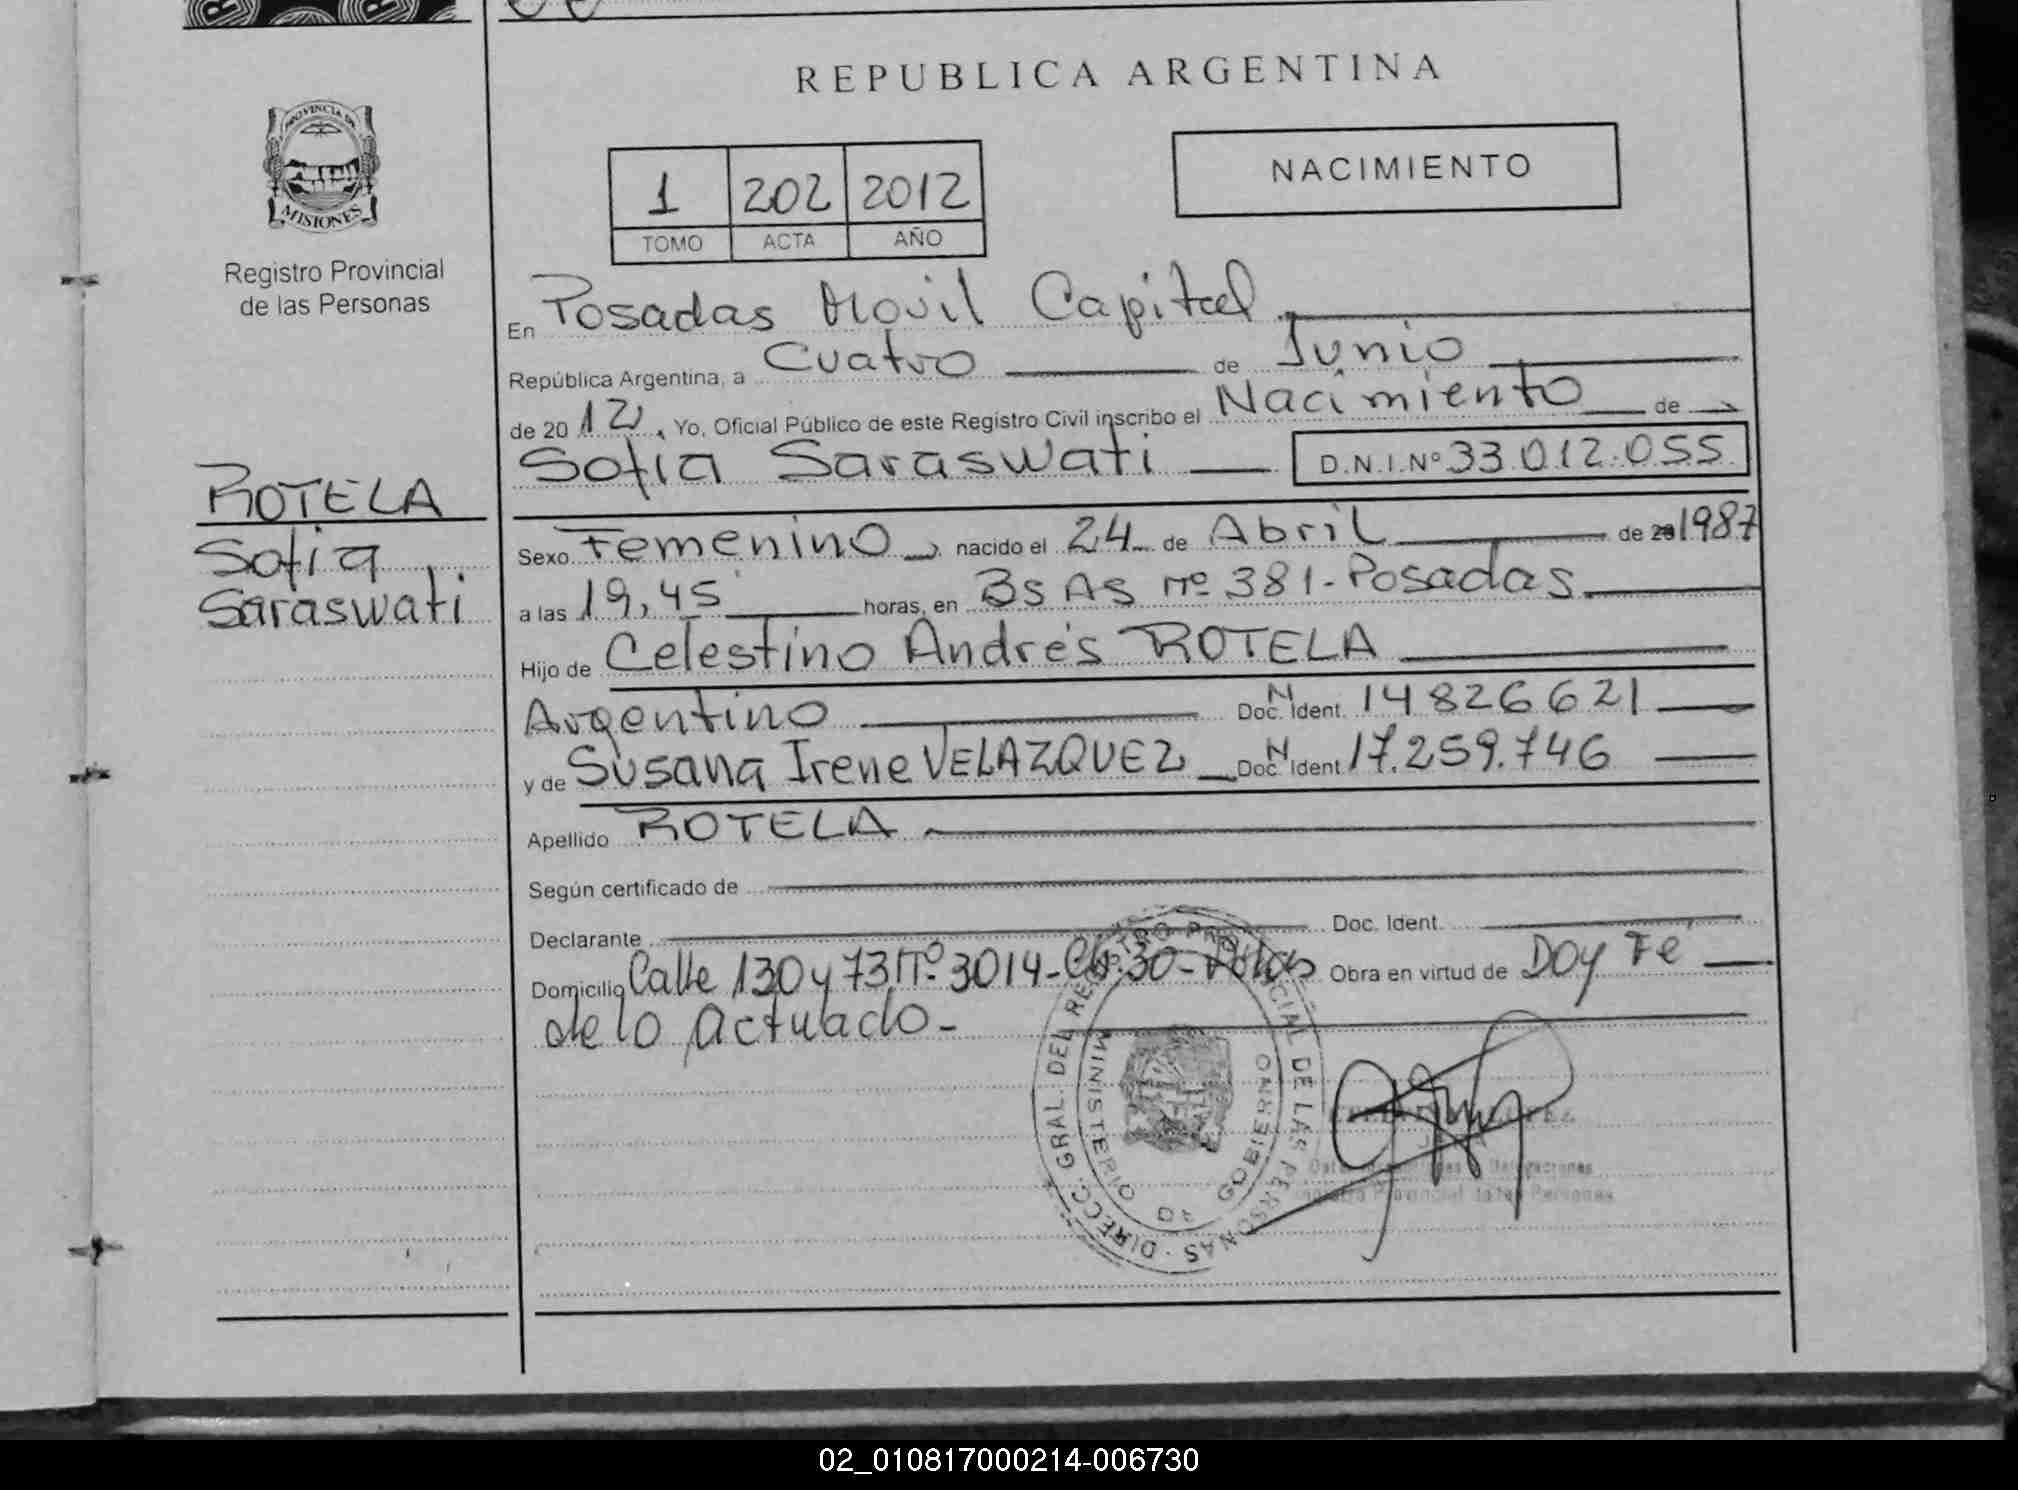 REPUBLICA ARGENTINA
PROVINCIA DE
MISIONES
Registro Provincial
de las Personas
NACIMIENTO
1 202 2012
TOMO ACTA AÑO
En Posadas Movil Capital
República Argentina, a Cuatro de Junio
de 2012, Yo, Oficial Público de este Registro Civil inscribo el Nacimiento de
Sofia Saraswati D.N.I.Nº 33.012.055
ROTELA
Sofia
Saraswati
Sexo Femenino, nacido el 24 de Abril de 20 1987
a las 19,45 horas, en Bs As nº 381-Posadas
Hijo de Celestino Andrés ROTELA
Argentino Doc. N Ident. 14826621
y de Susana Irene VELAZQUEZ Doc. N Ident 17.259.746
Apellido ROTELA
Según certificado de
Declarante Doc. Ident.
Domicilio Calle 130 y 73 Nº 3014-Ch.30-Pdas Obra en virtud de Doy Fé
de lo Actuado-
DIRECC. GRAL. DEL REGISTRO PROVINCIAL DE LAS PERSONAS
MINISTERIO DE GOBIERNO
Delegaciones
Registro Provincial de las Personas
02_010817000214-006730